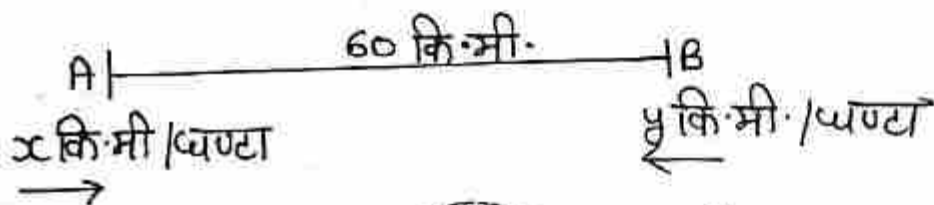 60 कि.मी.
A B
x कि.मी /घण्टा y कि.मी. /घण्टा